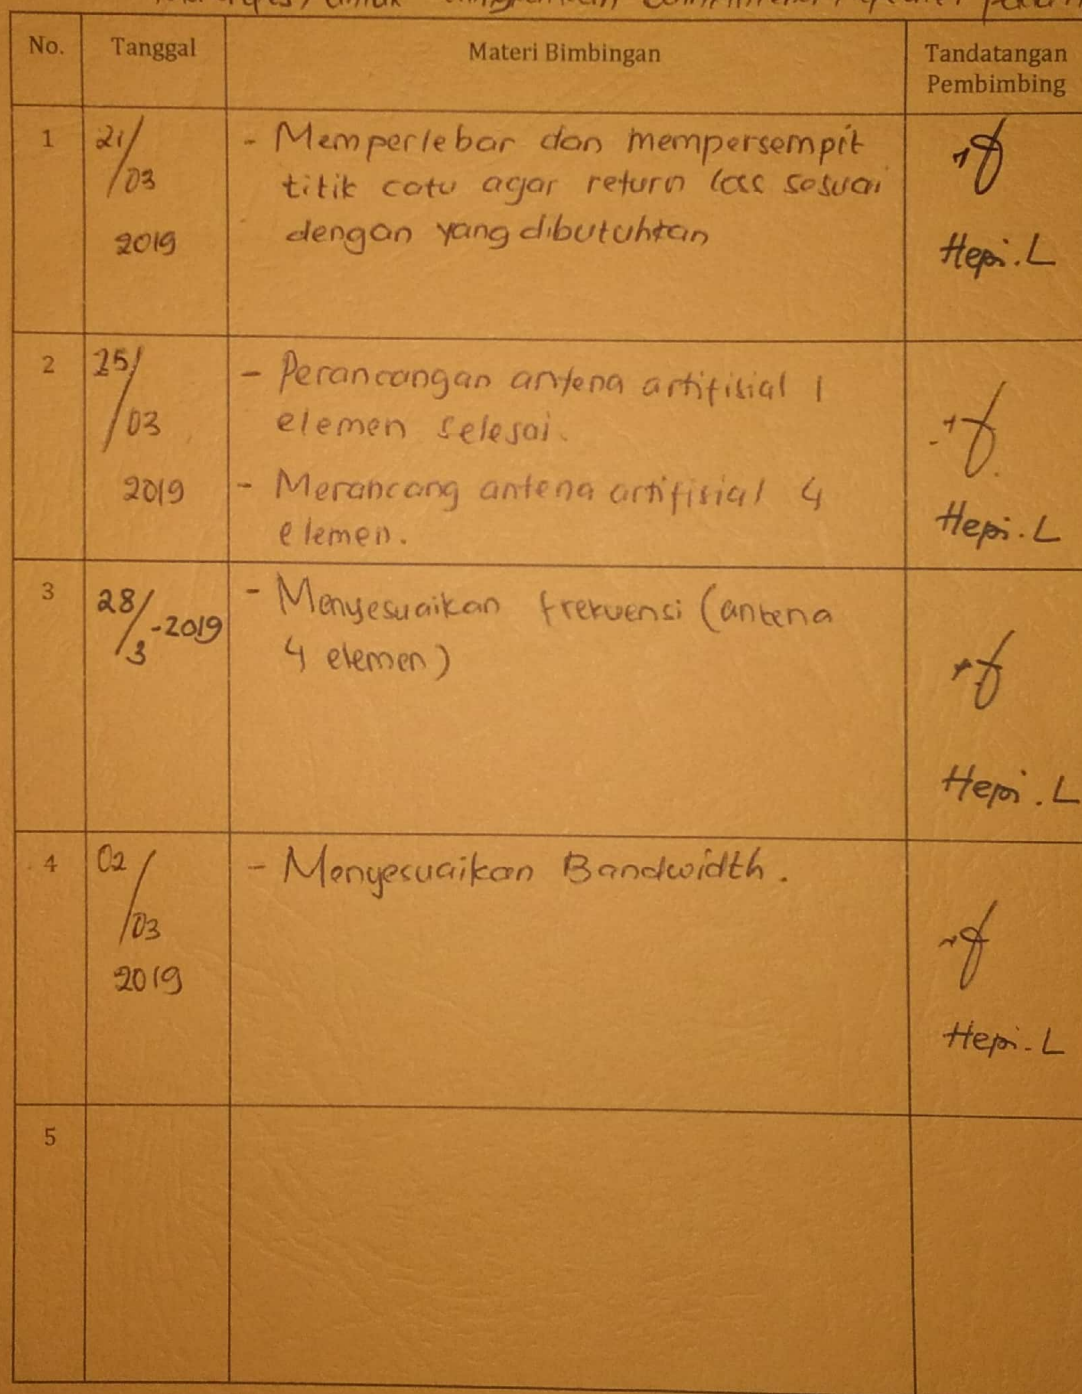 untuk
No. Tanggal Materi Bimbingan Tandatangan
Pembimbing
1 21/03 2019 - Memperlebar dan mempersempit
titik catu agar return loss sesuai
dengan yang dibutuhkan
Hepi.L
2 25/03 2019 - Perancangan antena artifisial 1
elemen selesai.
- Merancang antena artifisial 4
elemen.
Hepi.L
3 28/3-2019 - Menyesuaikan frekuensi (antena
4 elemen)
Hepi.L
4 02/03 2019 - Menyesuaikan Bandwidth.
Hepi.L
5